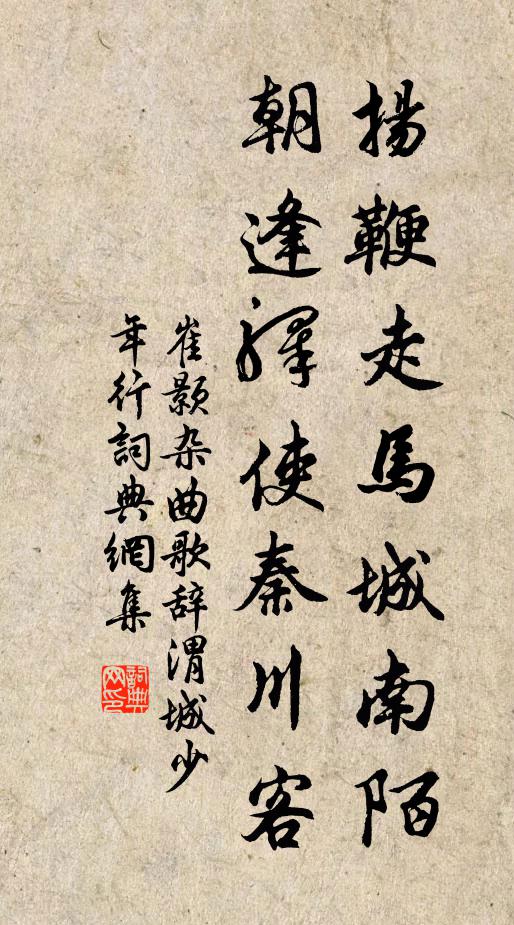 揚鞭走馬城南陌
朝逢驛使秦川客
崔颢杂曲歌辞渭城少
年行詞典網集
詞典
网印